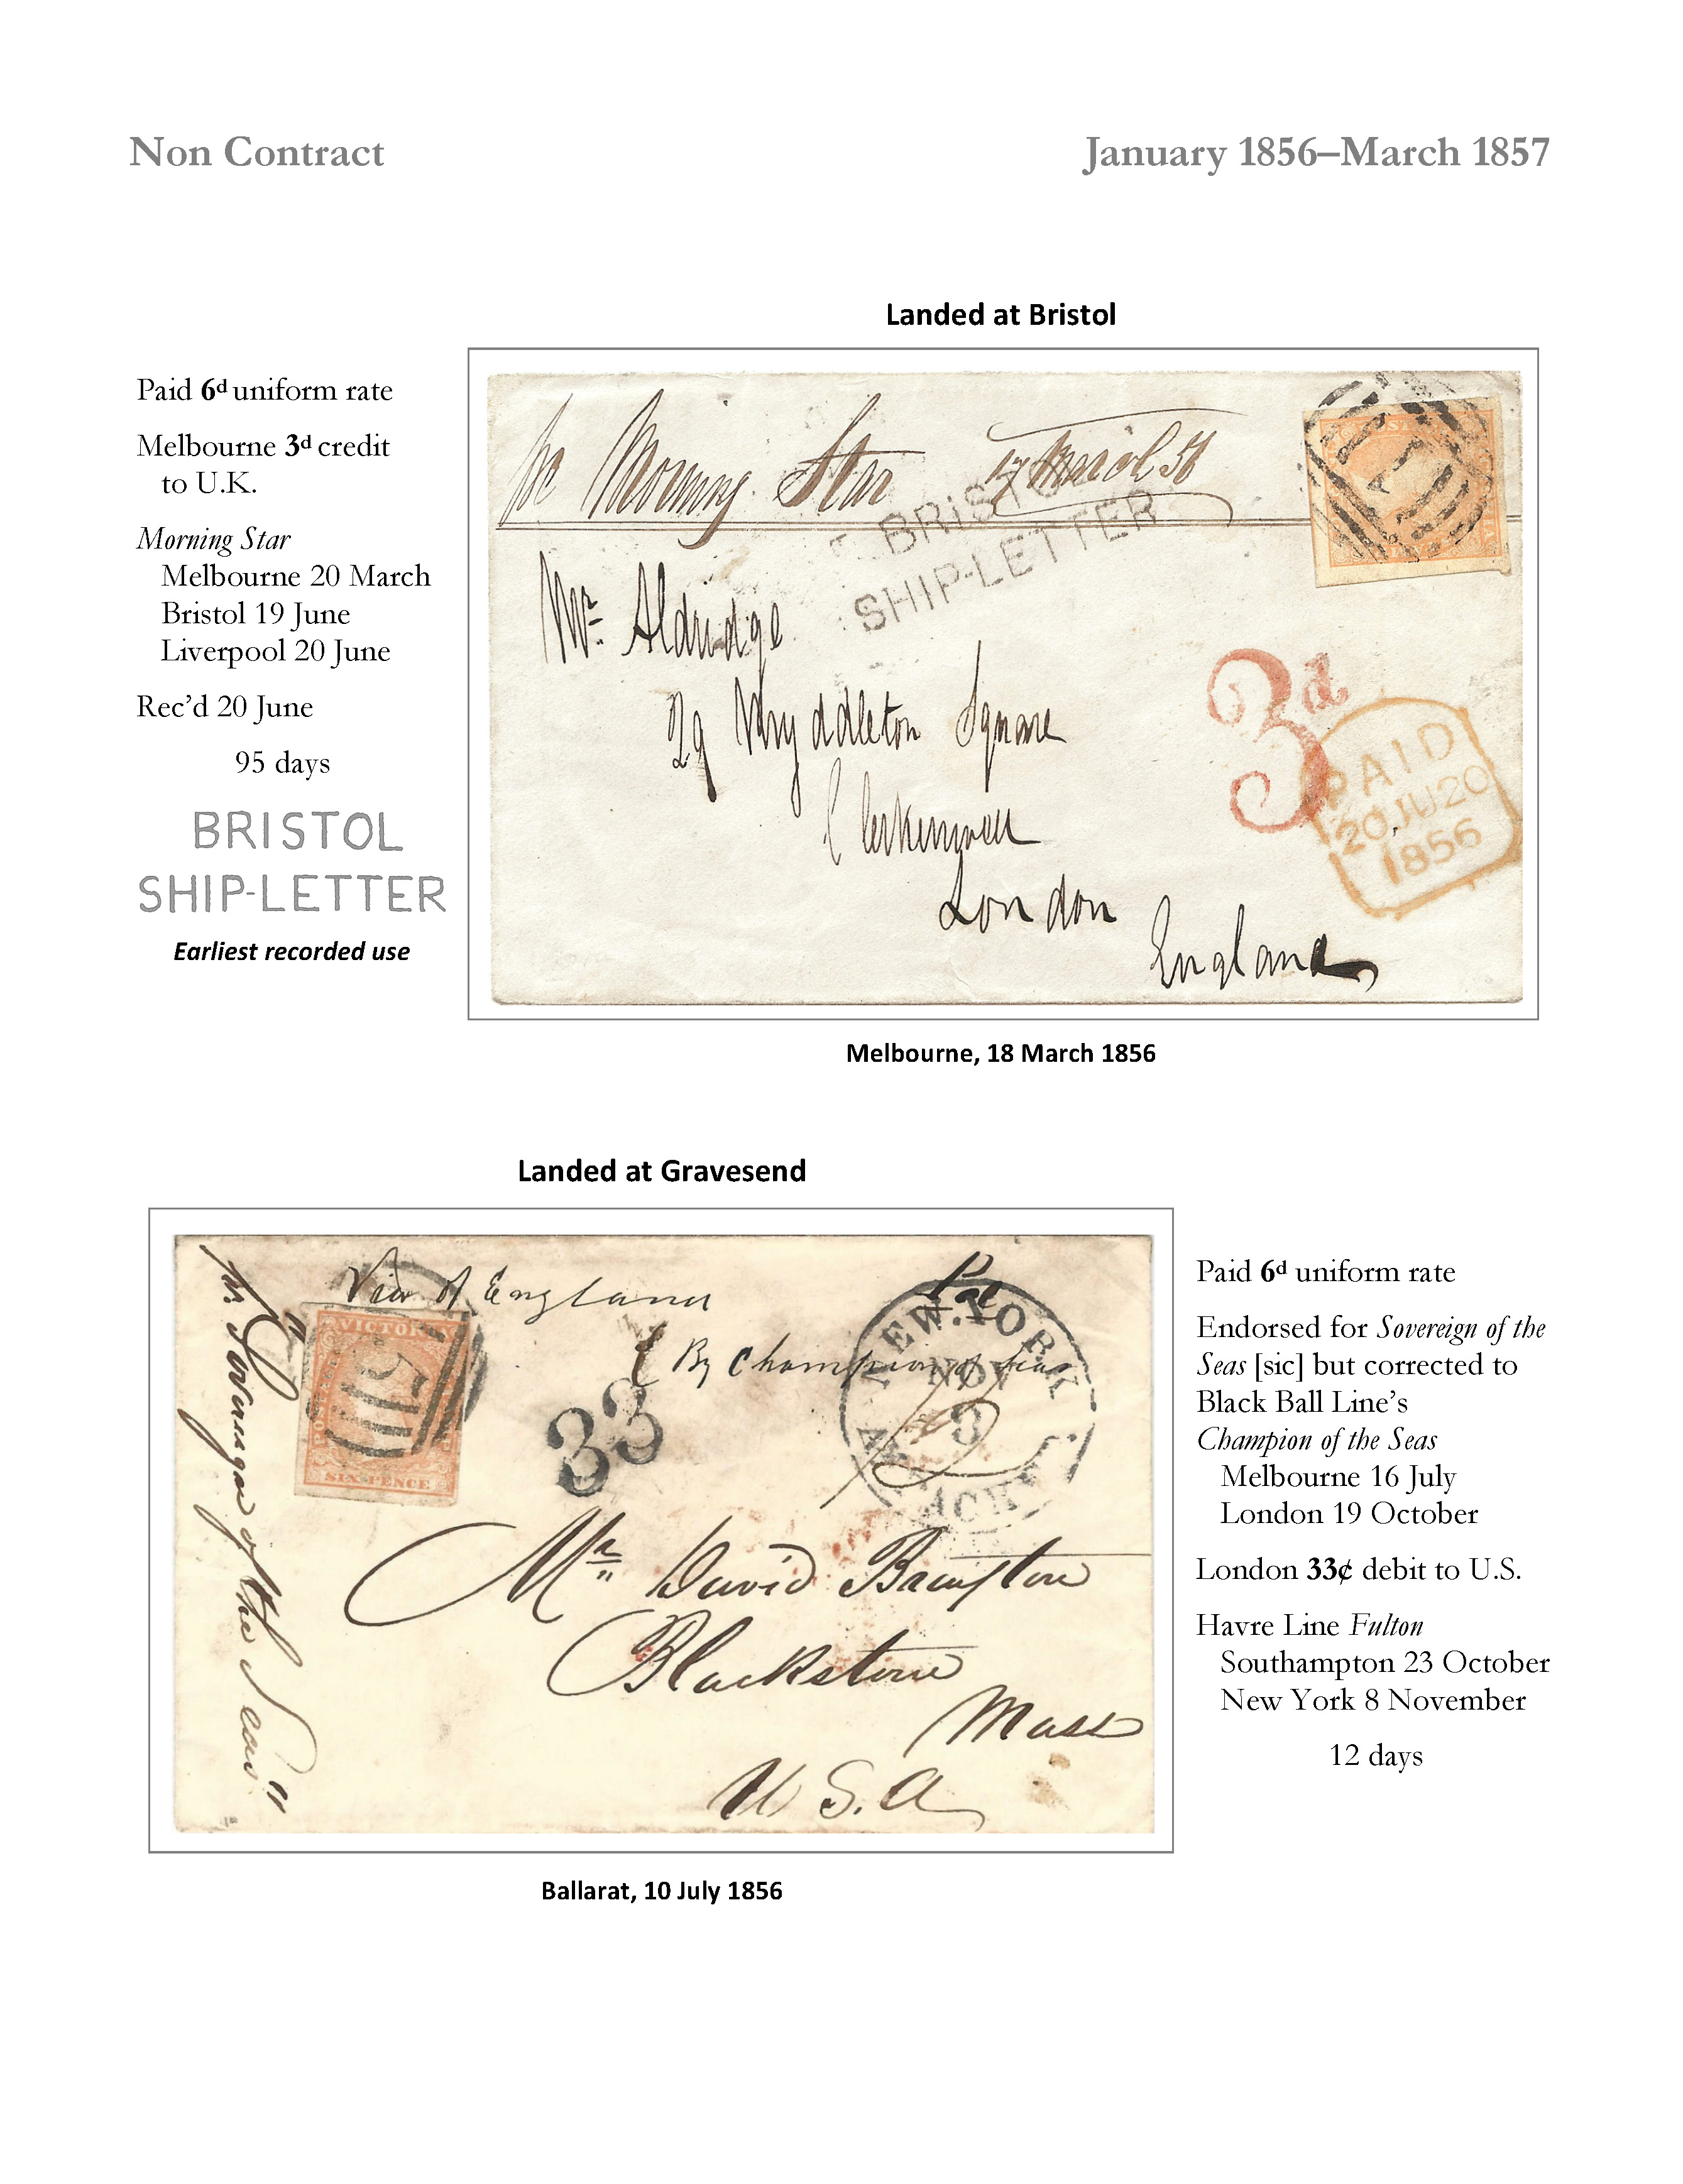 Non Contract
January 1856–March 1857
Landed at Bristol
Paid 6d uniform rate
Melbourne 3d credit
to U.K.
Morning Star
Melbourne 20 March
Bristol 19 June
Liverpool 20 June
Rec'd 20 June
95 days
BRISTOL
SHIP-LETTER
Earliest recorded use
pr Morning Star 17 March 56
BRISTOL
SHIP-LETTER
1
Mr Aldridge
29 Myddleton Square
Clerkenwell
London
England
3d
PAID
20 JU 20
1856
Melbourne, 18 March 1856
Landed at Gravesend
Via of England
By Champion of Seas
pr "Sovereign of the Seas"
VICTORIA
SIX PENCE
33
Pd
NEW YORK
NOV
8
Mr David
Blackstone
Mass
U S. A
Paid 6d uniform rate
Endorsed for Sovereign of the
Seas [sic] but corrected to
Black Ball Line's
Champion of the Seas
Melbourne 16 July
London 19 October
London 33¢ debit to U.S.
Havre Line Fulton
Southampton 23 October
New York 8 November
12 days
Ballarat, 10 July 1856